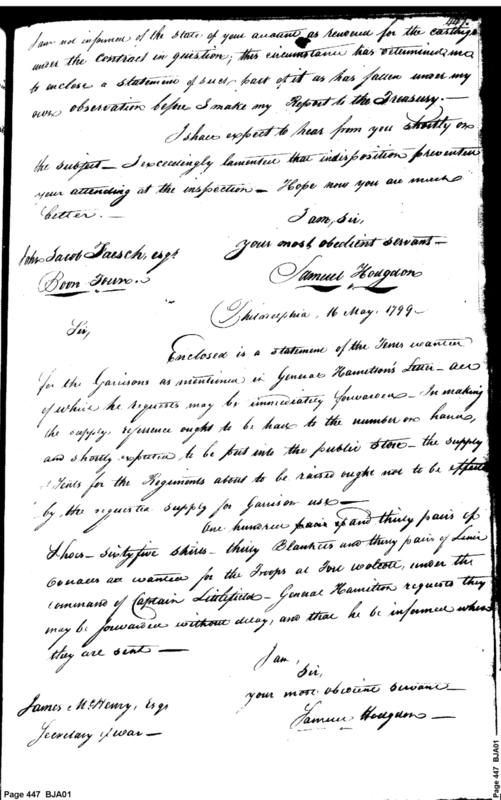 447.
I am not informed of the state of your account as rendered for the castings
under the Contract in question; this circumstance has determined me
to enclose a statement of such part of it as has fallen under my
own observation before I make my Report to the Treasury.—
I shall expect to hear from you shortly on
the subject— I exceedingly lamented that indisposition prevented
your attending at the inspection— Hope now you are much
better.—
I am, Sir,
your most obedient servant—
John Jacob Faesch, esqr
Samuel Hodgdon
Boon Town.
Philadelphia, 16 May. 1799—
Sir,
Enclosed is a statement of the Tents wanted
for the Garrisons as mentioned in General Hamilton's Letter— all
of which he requests may be immediately forwarded— In making
the supply, reference ought to be had to the number on hand,
and shortly expected to be put into the public Store— the supply
of Tents for the Regiments about to be raised ought not to be affected
by the requested supply for Garrison use—
One hundred pairs of and thirty pairs of
Shoes— sixty five shirts— thirty Blankets and thirty pairs of Linen
Overalls are wanted for the Troops at Fort Wolcott, under the
command of Captain Littlefield— General Hamilton requests they
may be forwarded without delay, and that he be informed when
they are sent—
I am,
Sir,
your most obedient servant—
James McHenry, Esqr
Samuel Hodgdon—
Secretary of war—
Page 447 BJA01
Page 447 BJA01